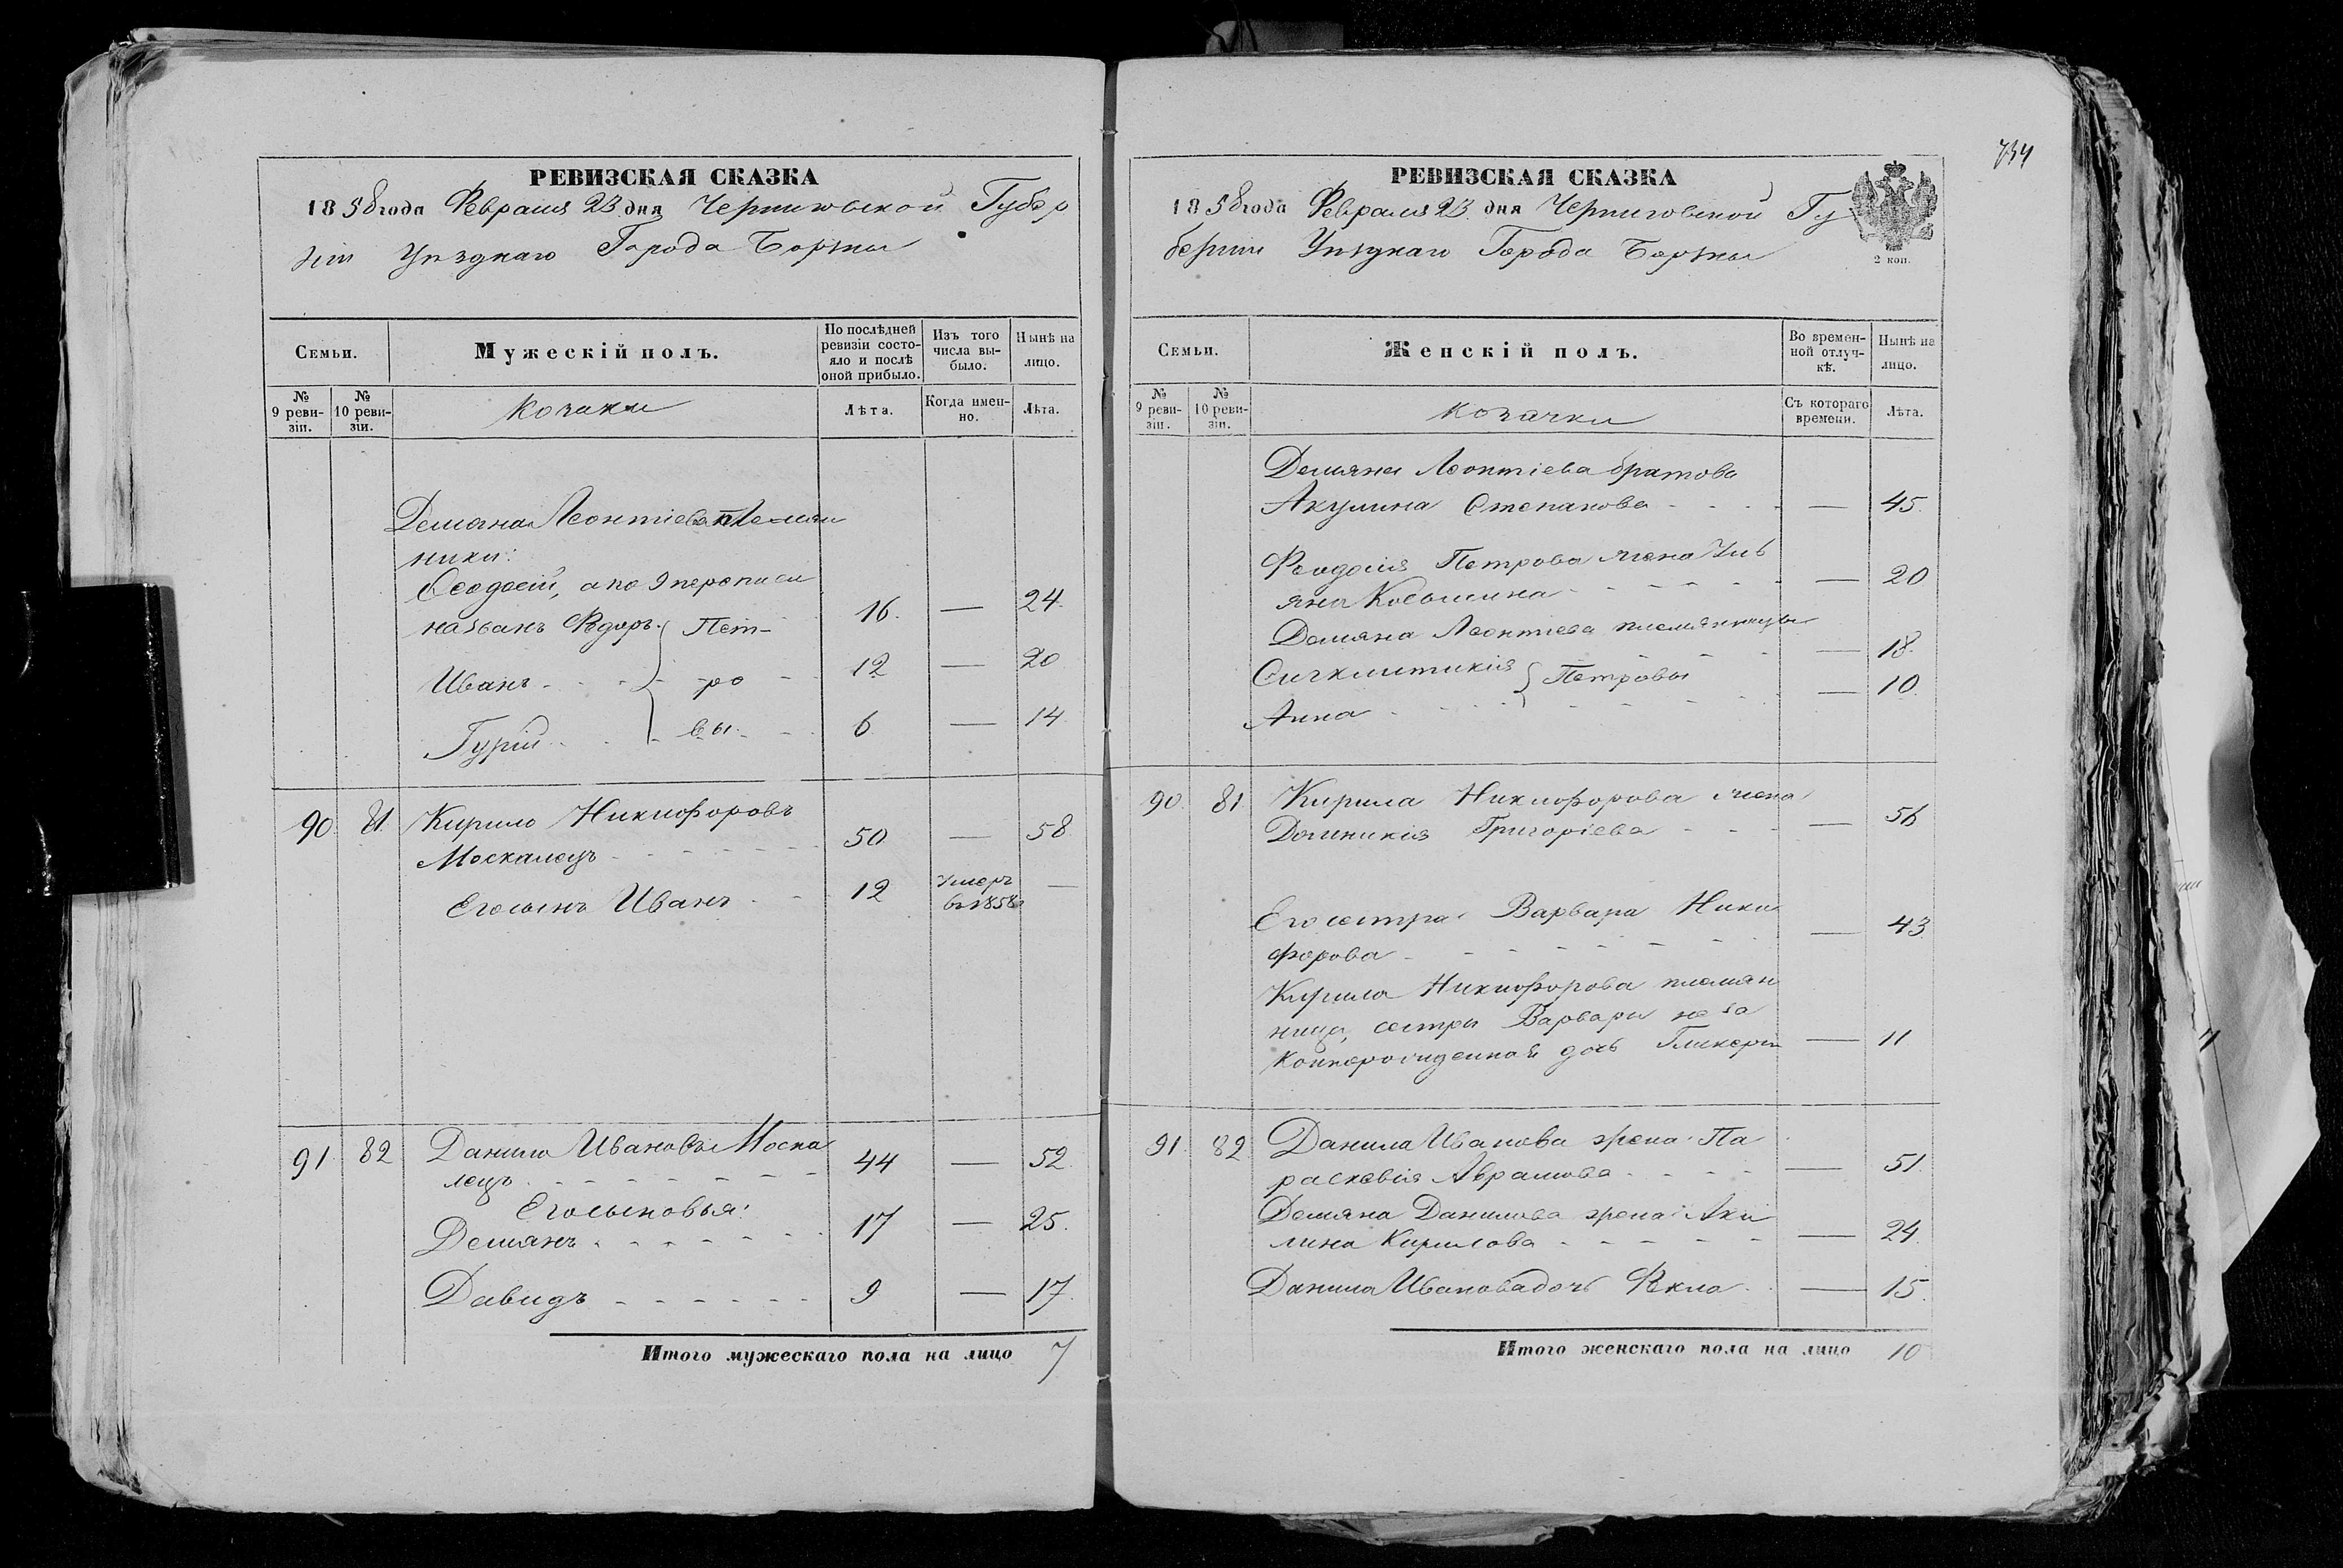 РЕВИЗСКАЯ СКАЗКА
1858 года Февраля 23 дня Черниговской Губер
ніи Уѣзднаго Города Борзны
Семьи.
Мужескій полъ.
По послѣдней ревизіи состояло и послѣ оной прибыло.
Изъ того числа выбыло.
Нынѣ на лицо.
№ 9 ревизіи.
№ 10 ревизіи.
Козаки
Лѣта.
Когда именно.
Лѣта.
Демяна Леонтіева племян
ники:
Ѳеодосій, а по 9 переписи
названъ Федоръ Пет- 16. — 24.
Иванъ ро 12 — 20
Гурій вы 6 — 14
90. 81. Кирило Никифоровъ
Москалецъ 50 — 58
Его сынъ Иванъ 12 умеръ —
въ 1858
91 82 Данило Ивановъ Моска
лецъ 44 — 52
Его сыновья:
Демянъ 17 — 25.
Давидъ 9 — 17.
Итого мужескаго пола на лицо 7
734
РЕВИЗСКАЯ СКАЗКА
1858 года Февраля 23 дня Черниговской Гу
берніи Уѣзднаго Города Борзны
2 коп.
Семьи.
Женскій полъ.
Во временной отлучкѣ.
Нынѣ на лицо.
№ 9 ревизіи.
№ 10 ревизіи.
Козачки
Съ котораго времени.
Лѣта.
Демяна Леонтіева братова
Акулина Степанова — 45.
Феодосія Петрова жена Уль
яна Косьмина — 20
Демяна Леонтіева племянницы
Сигклитикія Петровы — 18.
Анна — 10.
90. 81 Кирила Никифорова жена
Домникія Григоріева — 56
Его сестра Варвара Ники
форова — 43
Кирила Никифорова племян
ница, сестры Варвары неза
коннорожденная дочь Гликерія — 11
91. 82. Данила Иванова жена Па
раскевія Аврамова — 51.
Демяна Данилова жена Аки
лина Кирилова — 24.
Данила Иванова дочь Фекла — 15.
Итого женскаго пола на лицо 10